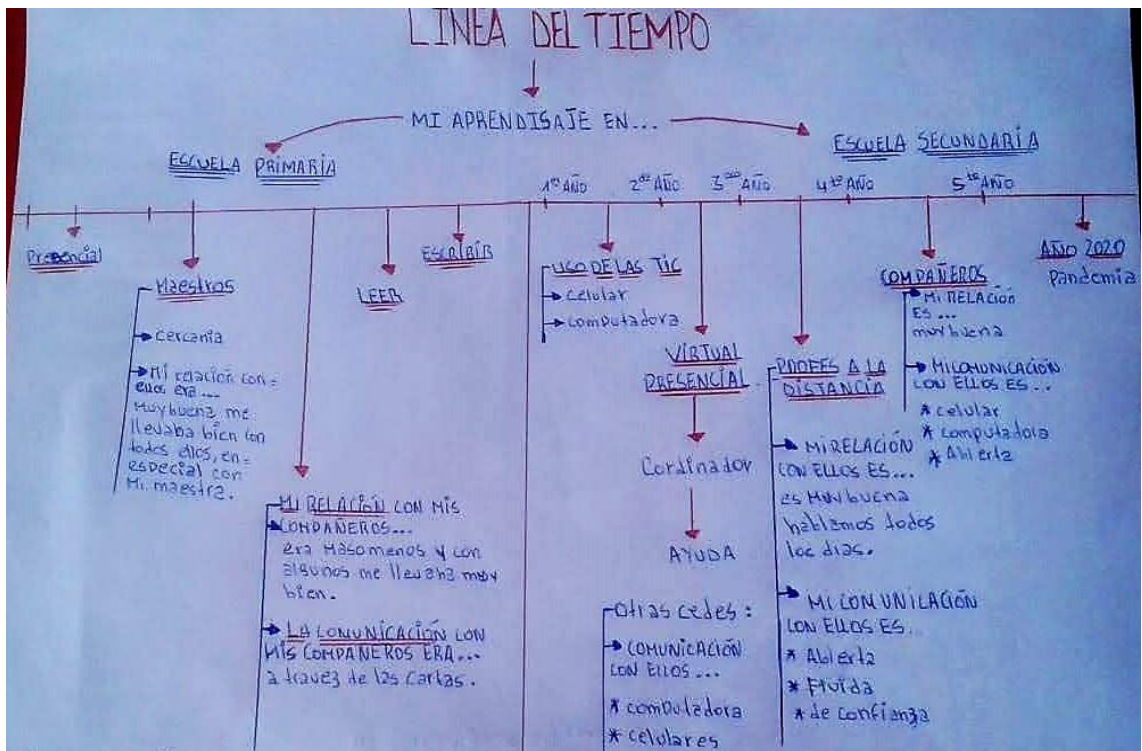 LINEA DEL TIEMPO
MI APRENDISAJE EN...
ESCUELA PRIMARIA
ESCUELA SECUNDARIA
1er AÑO
2do AÑO
3ero AÑO
4to AÑO
5to AÑO
Presencial
Maestros
Cercania
Mi relación con=
ellos era...
Muy buena me
llevaba bien con
todos ellos, en=
especial con
Mi maestra.
MI RELACIÓN CON MIS
COMPAÑEROS...
era Masomenos y con
algunos me llevaba muy
bien.
LA COMUNICACIÓN CON
MIS COMPAÑEROS ERA...
a travez de las Cartas.
LEER
ESCRIBIR
USO DE LAS TIC
Celular
computadora
VIRTUAL
PRESENCIAL
Cordinador
AYUDA
Otras cedes:
COMUNICACIÓN
CON ELLOS...
* computadora
* celulares
PROFES A LA
DISTANCIA
MI RELACIÓN
CON ELLOS ES...
es Muy buena
hablamos todos
los dias.
MI COMUNICACIÓN
CON ELLOS ES...
* Abierta
* Fluida
* de confianza
COMPAÑEROS
MI RELACIÓN
ES...
muy buena
MI COMUNICACIÓN
CON ELLOS ES...
* celular
* computadora
* Abierta
AÑO 2020
Pandemia